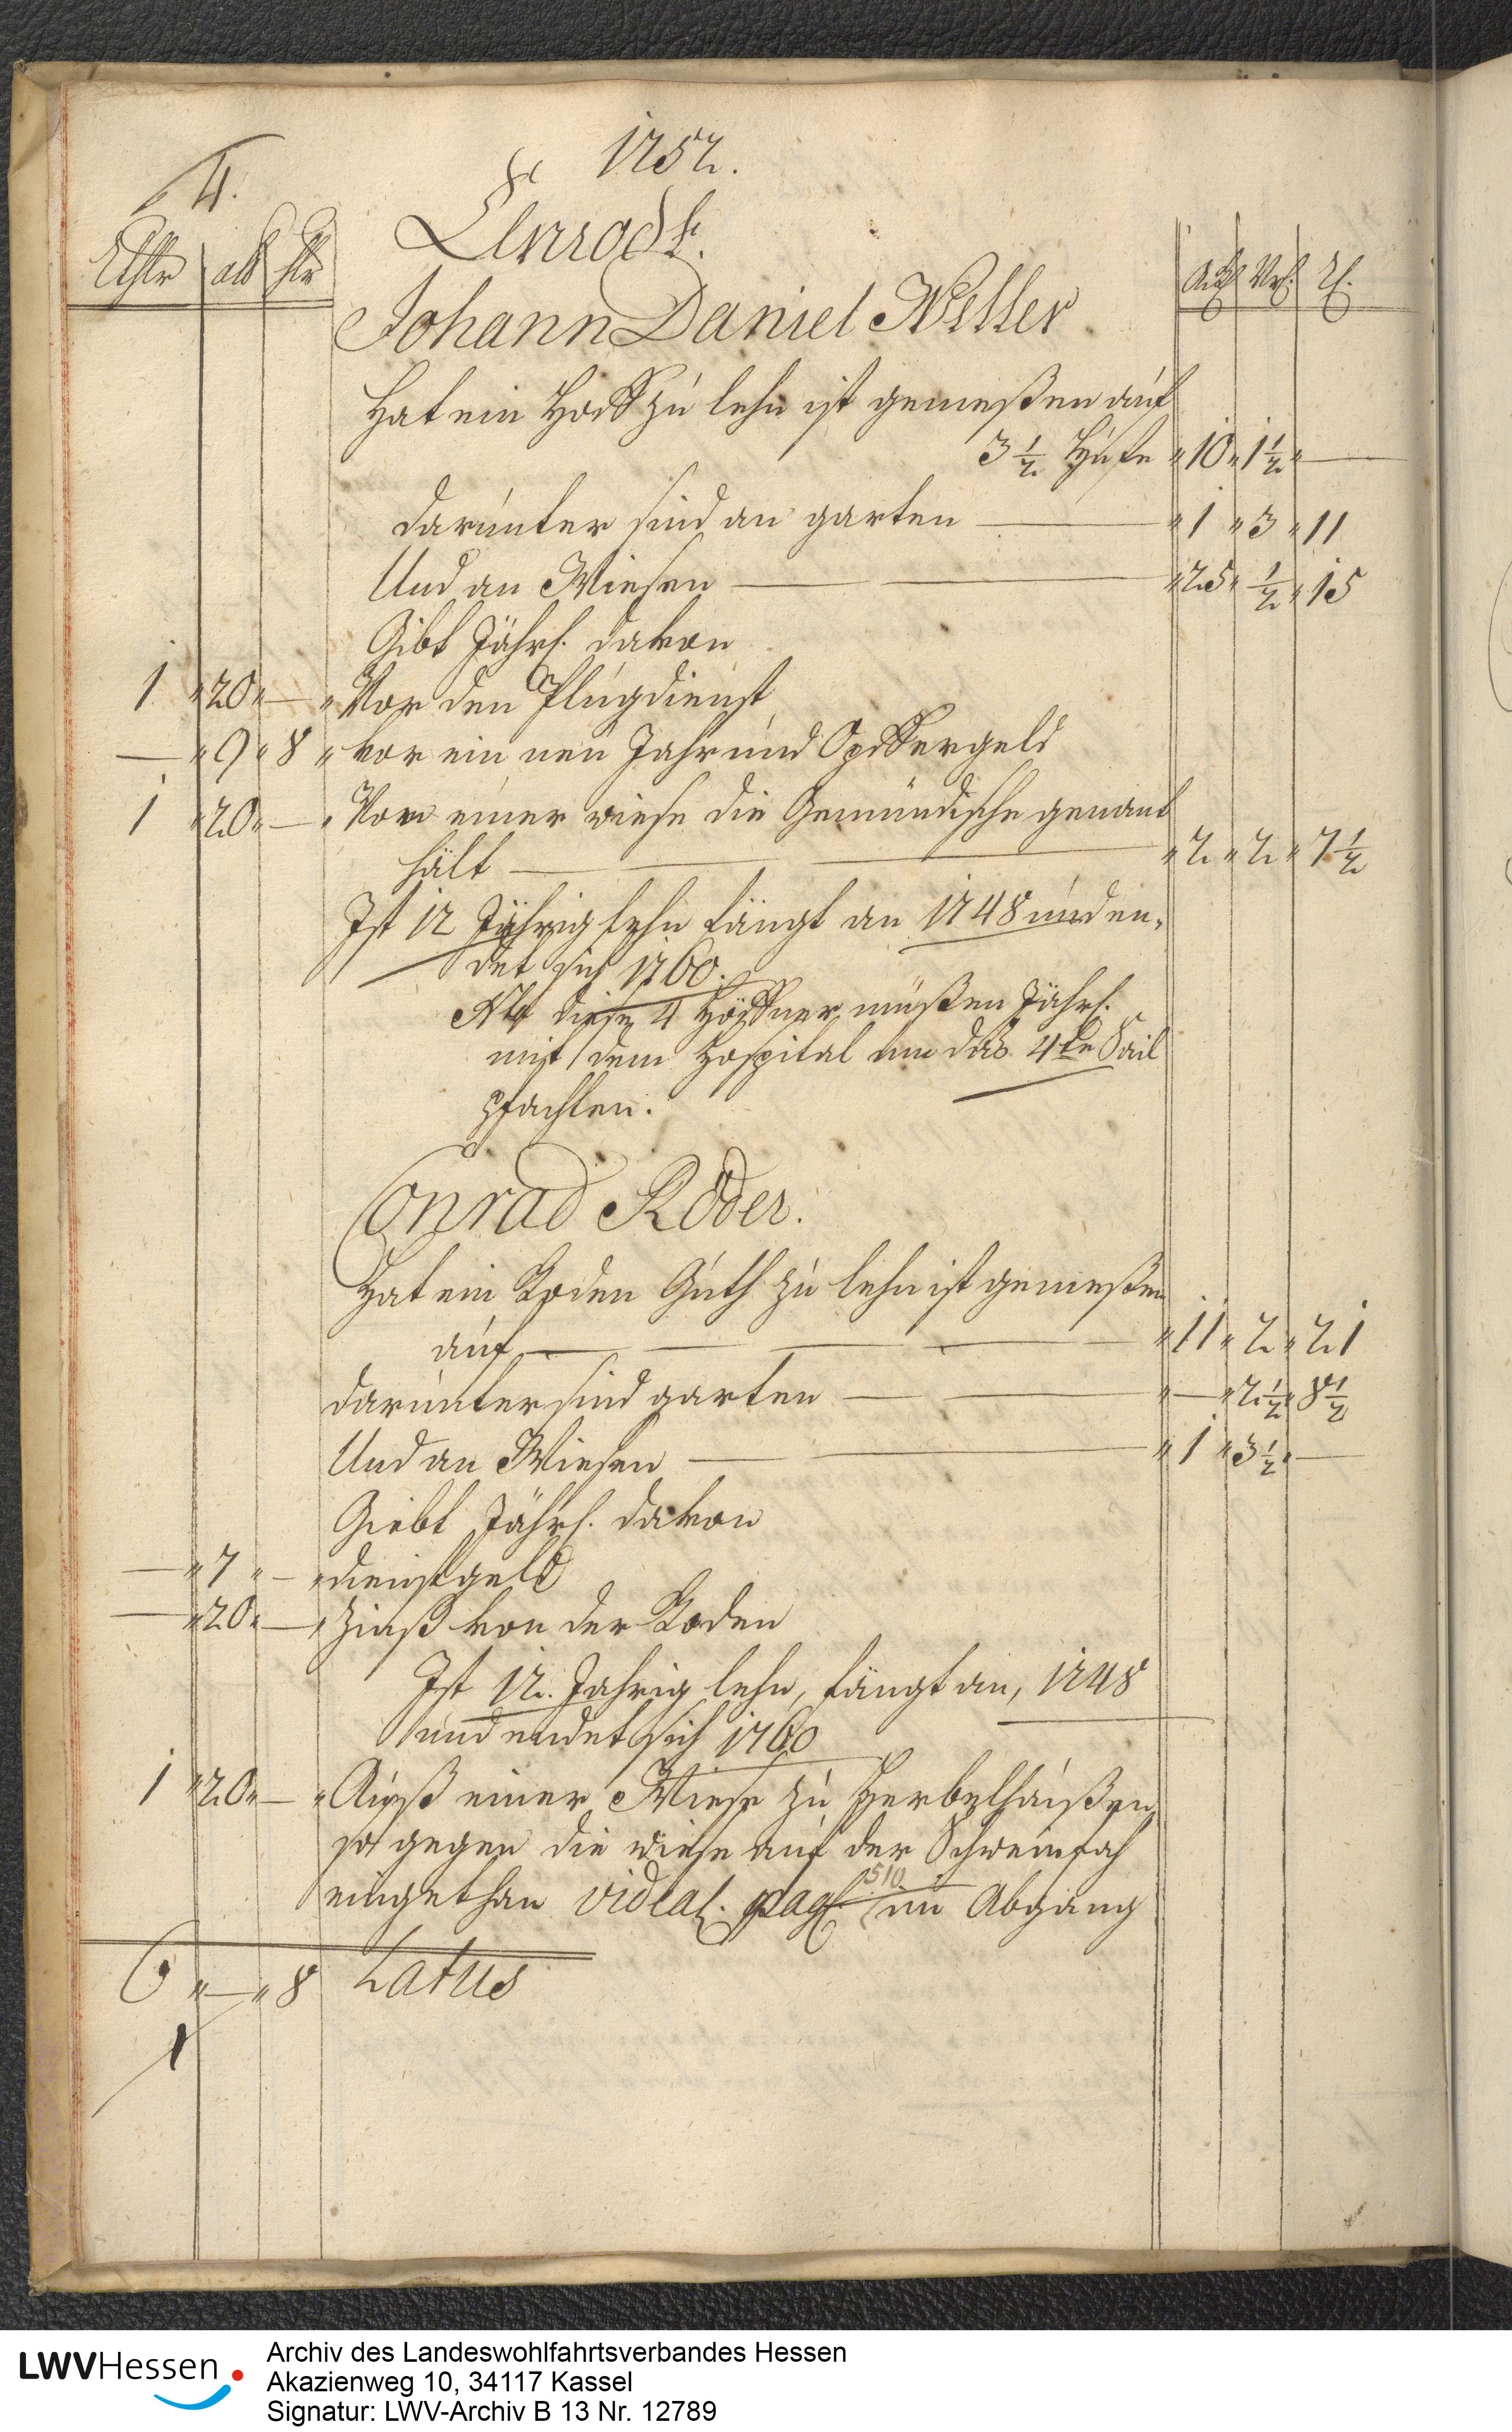 1752.
4.
Ellnrodt.
Rthlr alb hlr
Ack Vrt. R.
Johann Daniel Weller
Hat ein Hoff zu lehn ist gemeßen auf
3 1/2 Hufe " 10 " 1 1/2 " —
darunter sind an garten — " 1 " 3 " 11
Und an Wiesen — — " 25 " 1/2 " 15
Gibt Jährl. davon
1 " 20 " — " Vor den Plugdienst
— " 9 " 8 " vor ein neu Jahr und Opffergeld
1 " 20 " — " Von einer wiese die Gemündische genant
hält — — " 2 " 2 " 7 1/2
Ist 12 Jährig lehn fängt an 1748 und en-
det sich 1760.
NB diese 4 Höffner müßen Jährl.
mit dem Hospital um das 4te Tail
pfachten.
Conrad Röder.
Hat ein Roden Guth zu lehn ist gemeßen
auf — — — — " 11 " 2 " 21
darunter sind garten — — " — " 2 1/2 " 8 1/2
Und an Wiesen — — " 1 " 3 1/2 " —
Giebt Jährl. davon
— " 7 " — " dienstgeld
— " 20 " — " Zinß von der Roden
Ist 12. Jahrig lehn, fängt an, 1748
und endet sich 1760
1 " 20 " — " Auß einer Wiese zu Herbelhaußen
so gegen die wiese auf der Schweinfah
eingethan videat. pag. 510 im Abgang
6 " — " 8 Latus
LWVHessen
Archiv des Landeswohlfahrtsverbandes Hessen
Akazienweg 10, 34117 Kassel
Signatur: LWV-Archiv B 13 Nr. 12789